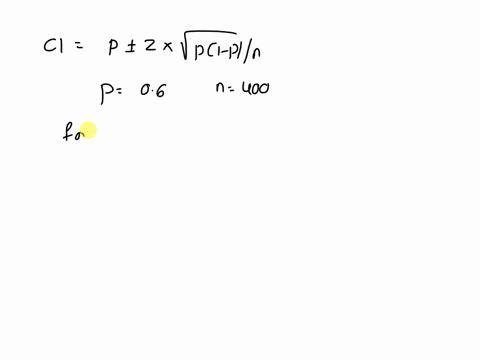 CI = p ± z × √p(1-p)/n
p = 0.6 n = 400
fo